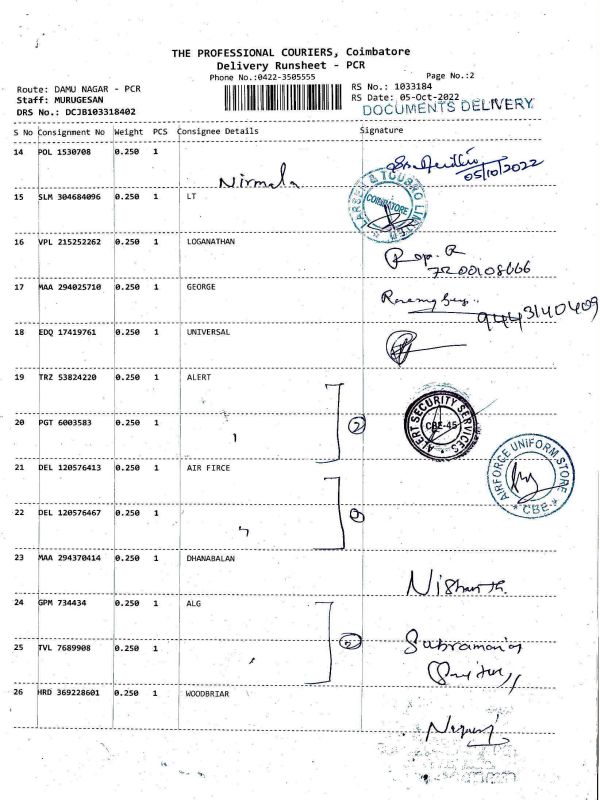 THE PROFESSIONAL COURIERS, Coimbatore
Delivery Runsheet - PCR
Phone No.:0422-3505555
Page No.:2
Route: DAMU NAGAR - PCR
RS No.: 1033184
Staff: MURUGESAN
RS Date: 05-Oct-2022
DRS No.: DCJB103318402
DOCUMENTS DELIVERY
S No Consignment No Weight PCS Consignee Details Signature
14 POL 1530708 0.250 1
05/10/2022
Nirmala
15 SLM 304684096 0.250 1 LT
LARSEN & TOUBRO LIMITED
COIMBATORE
16 VPL 215252262 0.250 1 LOGANATHAN
7200108666
17 MAA 294025710 0.250 1 GEORGE
9443140409
18 EDQ 17419761 0.250 1 UNIVERSAL
19 TRZ 53824220 0.250 1 ALERT
ALERT SECURITY SERVICES
CBE-45
20 PGT 6003583 0.250 1
2
21 DEL 120576413 0.250 1 AIR FIRCE
AIRFORCE UNIFORM STORE
CBE
22 DEL 120576467 0.250 1
23 MAA 294370414 0.250 1 DHANABALAN
Nishanth.
24 GPM 734434 0.250 1 ALG
25 TVL 7689908 0.250 1
Subramanian
26 HRD 369228601 0.250 1 WOODBRIAR